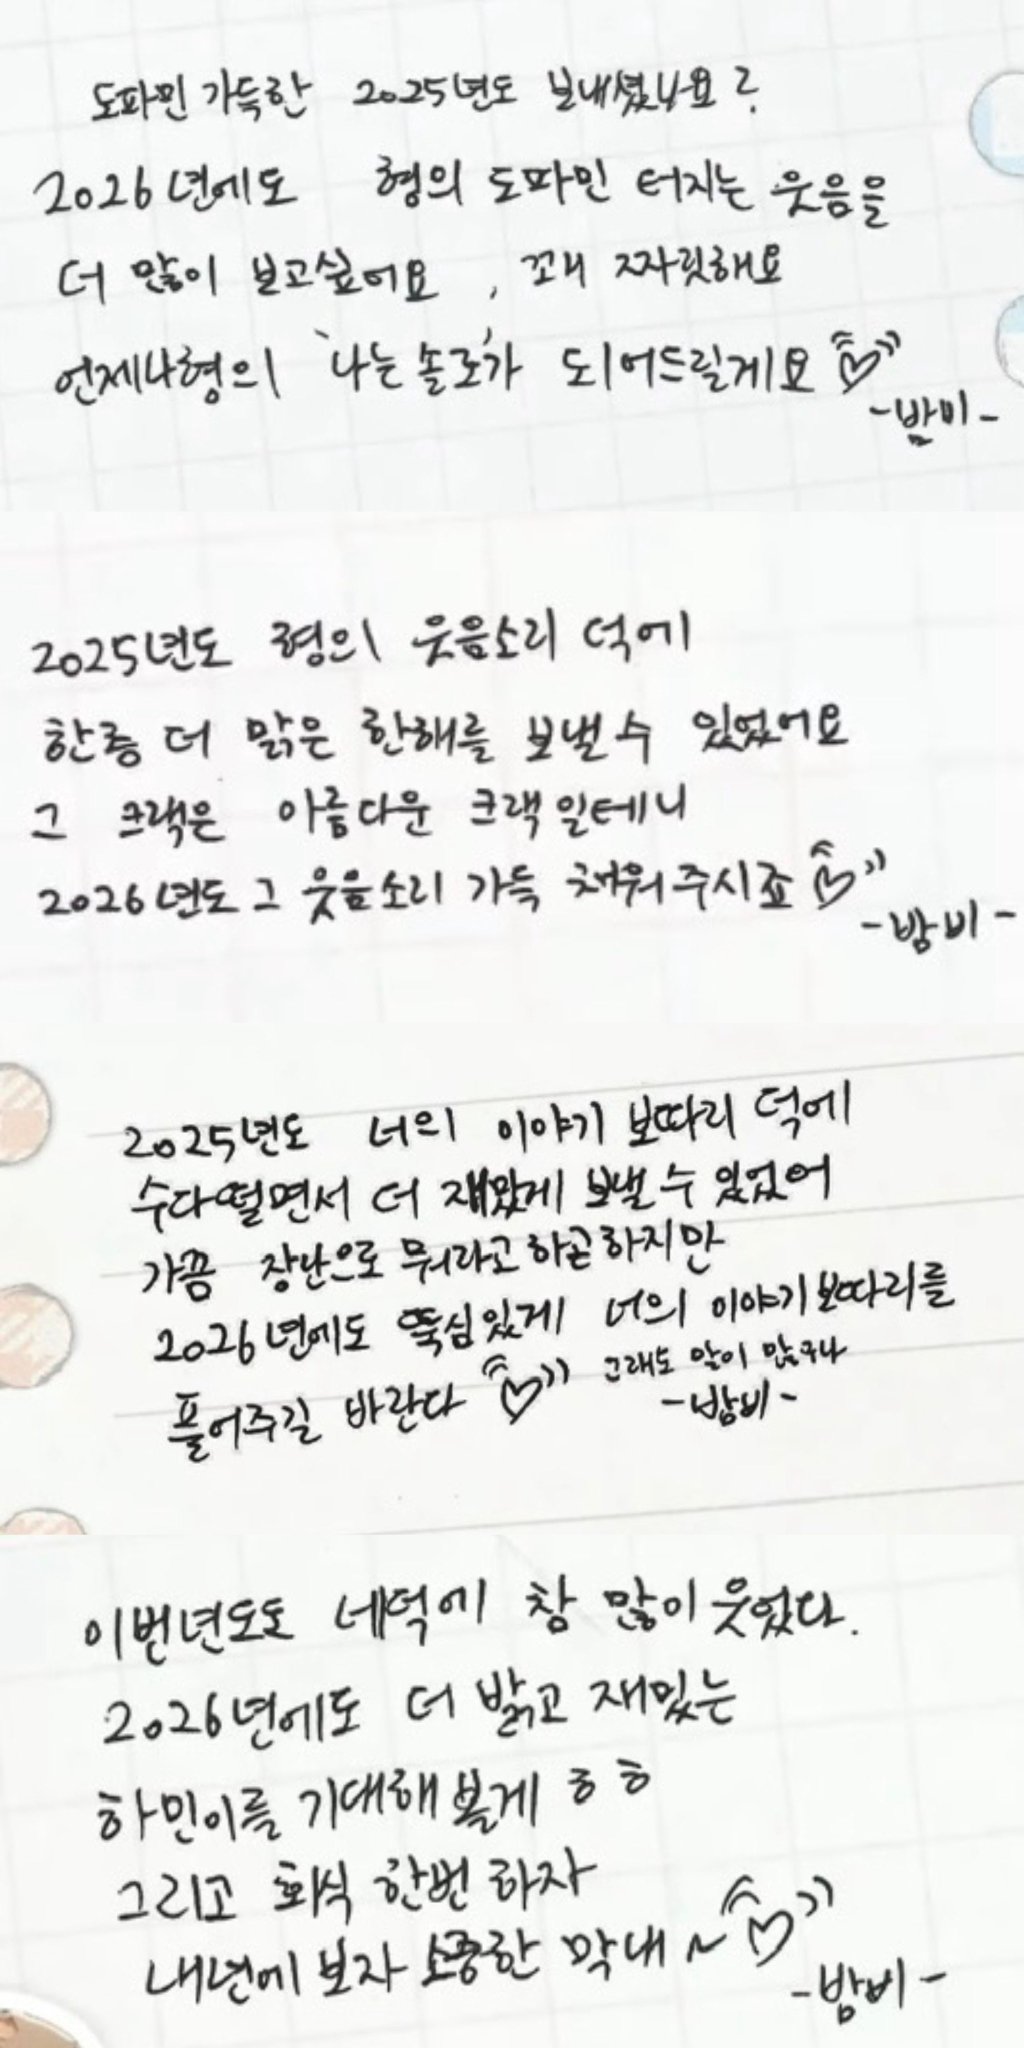 도파민 가득한 2025년도 보내셨나요?
2026년에도 형의 도파민 터지는 웃음을
더 많이 보고싶어요, 꼬내 짜릿해요
언제나형의 '나는솔로'가 되어드릴게요
-밤비-
2025년도 형의 웃음소리 덕에
한층 더 맑은 한해를 보낼 수 있었어요
그 크랙은 아름다운 크랙일테니
2026년도 그 웃음소리 가득 채워주시죠
-밤비-
2025년도 너의 이야기 보따리 덕에
수다떨면서 더 재밌게 보낼 수 있었어
가끔 장난으로 뭐라고 하곤하지만
2026년에도 뚝심있게 너의 이야기보따리를
풀어주길 바란다 그래도 말이 많구나
-밤비-
이번년도도 네덕에 참 많이 웃었다.
2026년에도 더 밝고 재밌는
하민이를 기대해볼게 ㅎㅎ
그리고 회식 한번 하자
내년에 보자 소중한 막내~
-밤비-